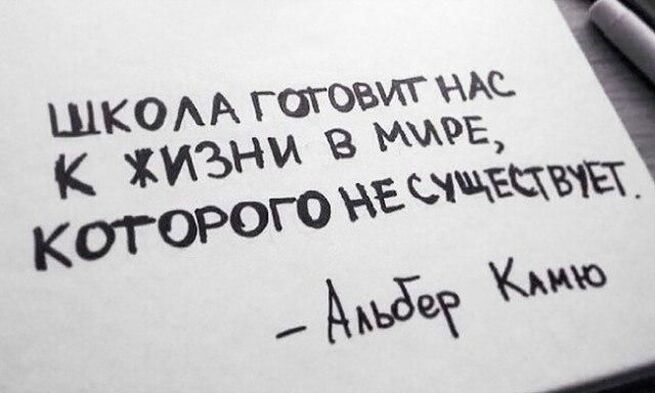 ШКОЛА ГОТОВИТ НАС
К ЖИЗНИ В МИРЕ,
КОТОРОГО НЕ СУЩЕСТВУЕТ.
– Альбер Камю